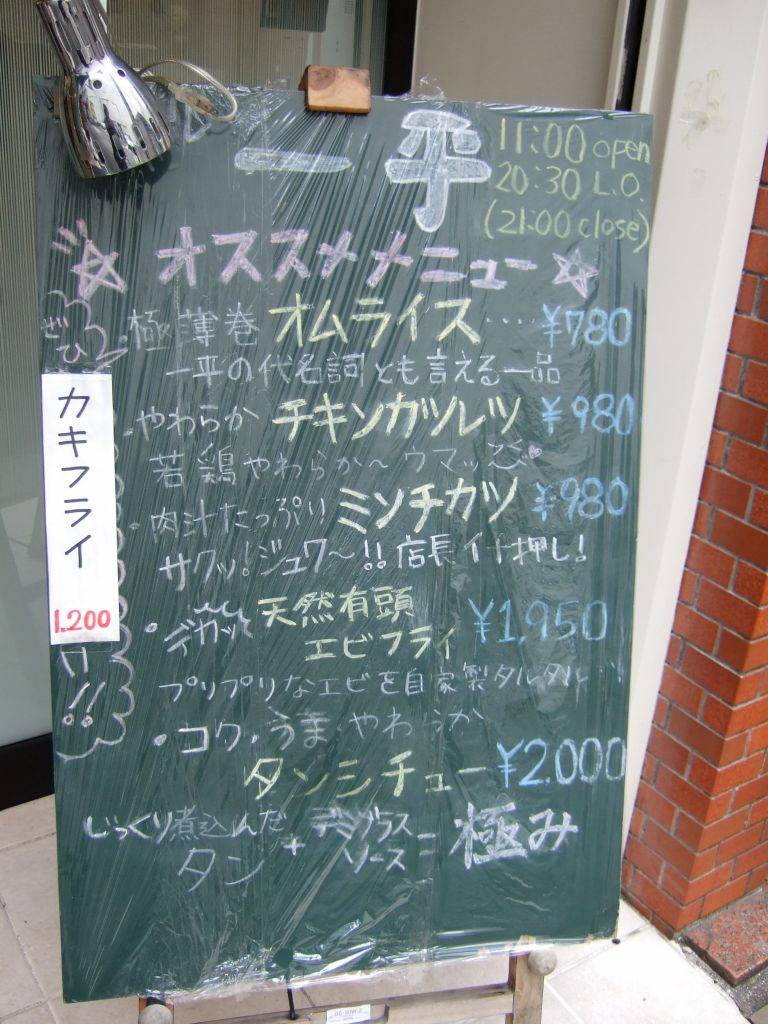 一平
11:00 open
20:30 L.O.
(21:00 close)
☆オススメメニュー☆
ぜひ
・極薄巻 オムライス····¥780
一平の代名詞とも言える一品
・やわらか チキンカツレツ ¥980
若鶏やわらか〜ウマッ
・肉汁たっぷり ミンチカツ ¥980
サクッ!ジュワ〜!!店長イチ押し!
・デカッ 天然有頭
エビフライ ¥1,950
プリプリなエビを自家製タルタル
・コク・うま・やわらか
タンシチュー ¥2.000
じっくり煮込んだ
タン + デミグラス
ソース = 極み
カキフライ
1.200
!!